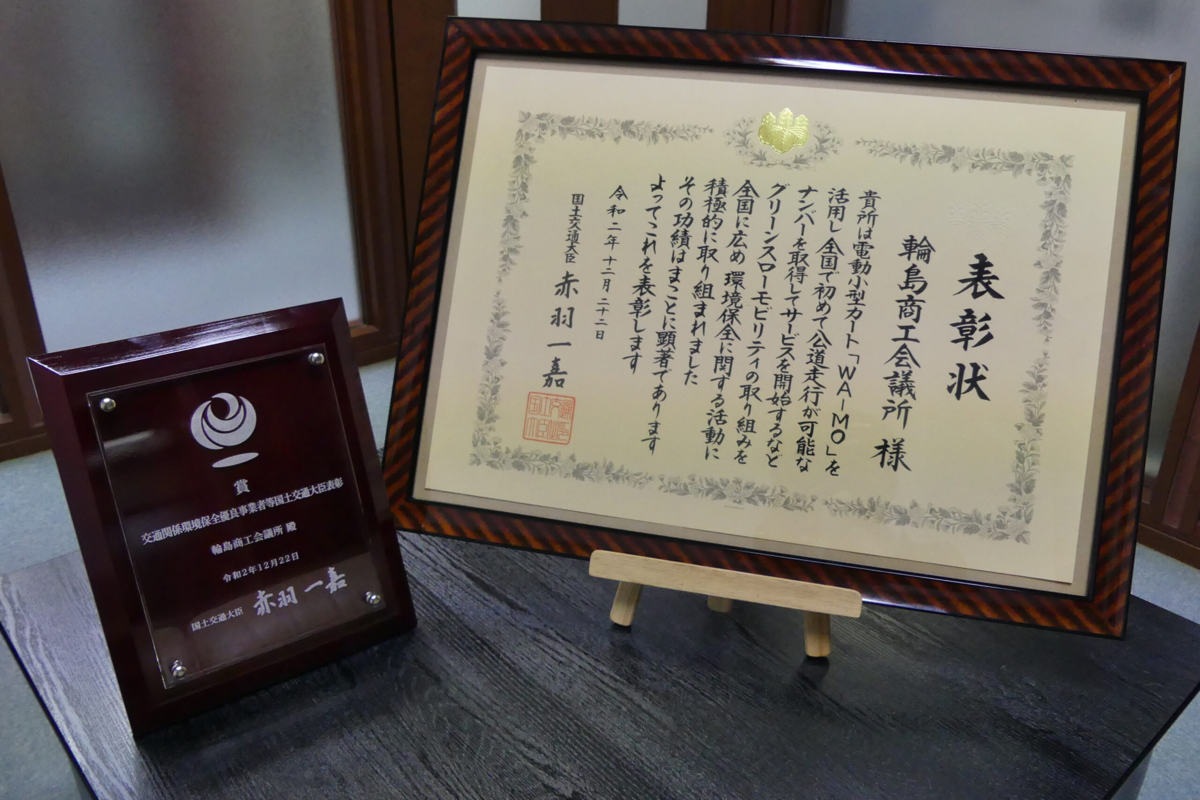 表彰状
輪島商工会議所 様
貴所は電動小型カート「WAIMO」を
活用し 全国で初めて公道走行が可能な
ナンバーを取得してサービスを開始するなど
グリーンスローモビリティの取り組みを
全国に広め 環境保全に関する活動に
積極的に取り組まれました
その功績はまことに顕著であります
よってこれを表彰します
令和二年十二月二十二日
国土交通大臣 赤羽一嘉
賞
交通関係環境保全優良事業者等国土交通大臣表彰
輪島商工会議所 殿
令和2年12月22日
国土交通大臣 赤羽一嘉